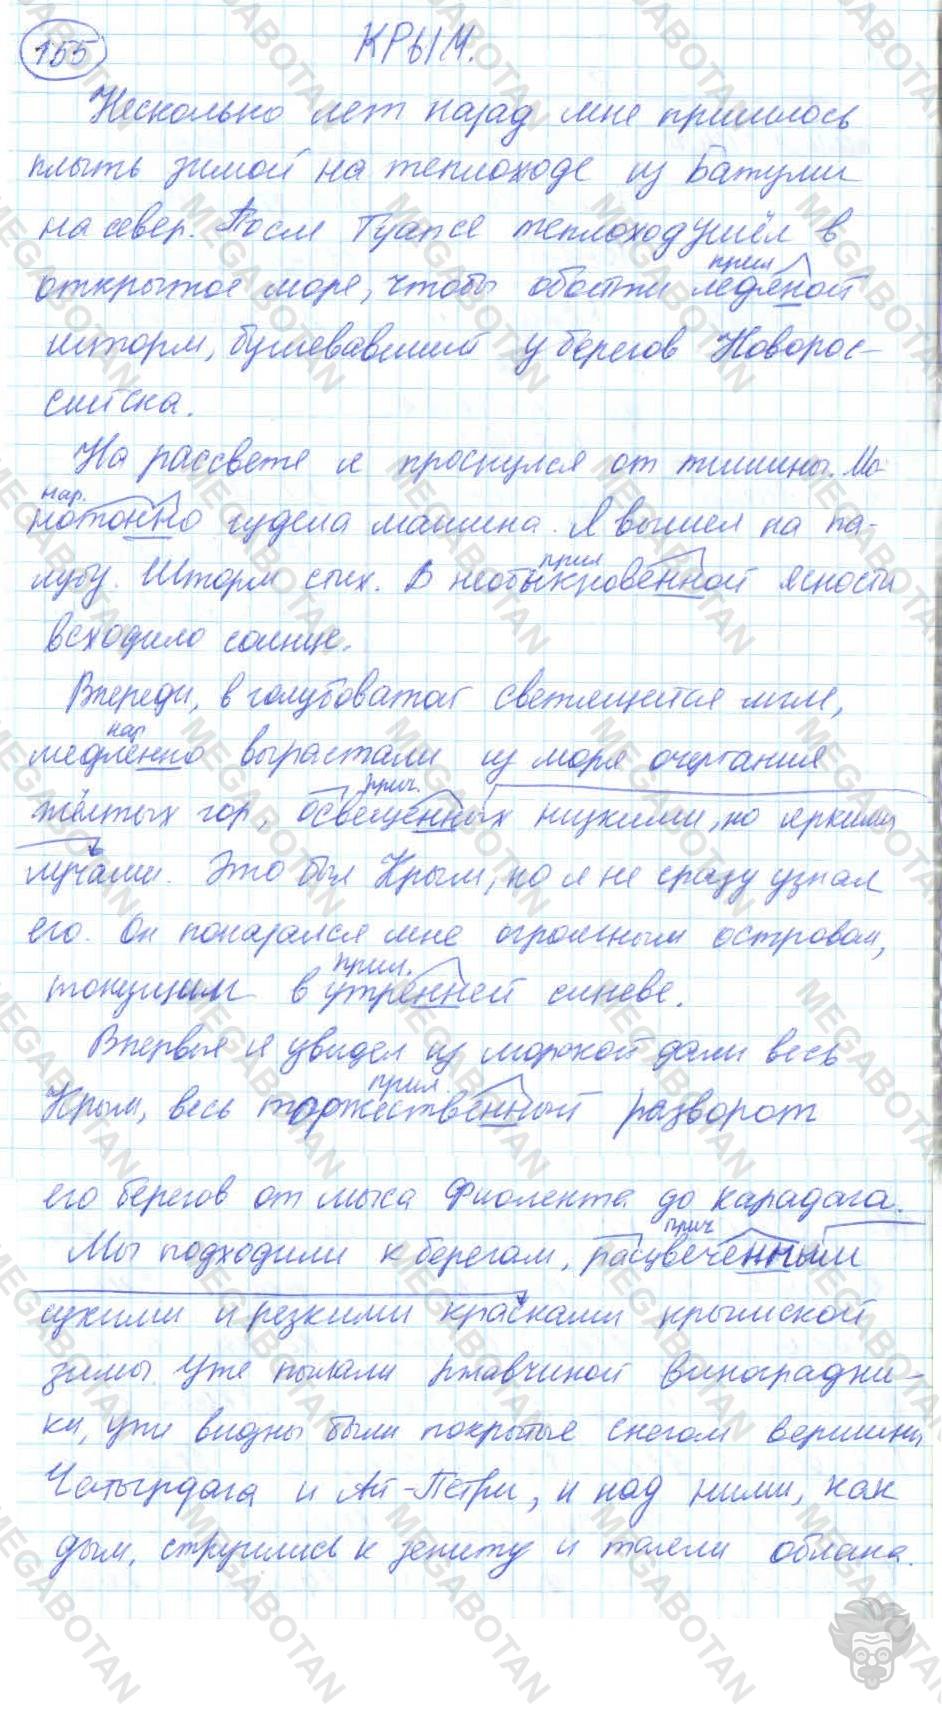 155 КРЫМ.
Несколько лет назад мне пришлось
плыть зимой на теплоходе из Батуми
на север. После Туапсе теплоход ушёл в
прил
открытое море, чтобы обойти ледяной
шторм, бушевавший у берегов Новорос-
сийска.
На рассвете я проснулся от тишины. Мо-
нар.
нотонно гудела машина. Я вышел на па-
прил
лубу. Шторм стих. В необыкровенной ясности
всходило солнце.
Впереди, в голубоватой светящейся мгле,
нар
медленно вырастали из моря очертания
прич.
жёлтых гор, освещенных низкими, но яркими
лучами. Это был Крым, но я не сразу узнал
его. Он показался мне огромным островом,
прил.
тонущим в утренней синеве.
Впервые я увидел из морской дали весь
прил.
Крым, весь торжественный разворот
его берегов от мыса Фиолента до Карадага.
прич
Мы подходили к берегам, расцвеченными
сухими и резкими красками крымской
зимы. Уже пылали ржавчиной виноградни-
ки, уже видны были покрытые снегом вершины
Чатырдага и Ай-Петри, и над ними, как
дым, струились к зениту и таяли облака.
MEGABOTAN